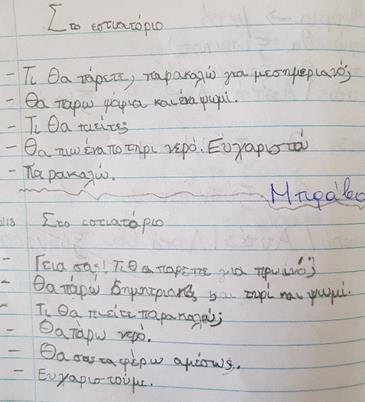 Στο εστιατόριο
- Τι θα πάρετε, παρακαλώ για μεσημεριανό;
- Θα πάρω ψάρια και ένα ψωμί.
- Τι θα πιείτε;
- Θα πιω ένα ποτήρι νερό. Ευχαριστώ
- Παρακαλώ.
Μπράβο
Στο εστιατόριο
- Γεια σας! Τι θα πάρετε για πρωινό;
- Θα πάρω δημητριακά και τυρί και ψωμί.
- Τι θα πιείτε παρακαλώ;
- Θα πάρω νερό.
- Θα σας τα φέρω αμέσως.
- Ευχαριστούμε.